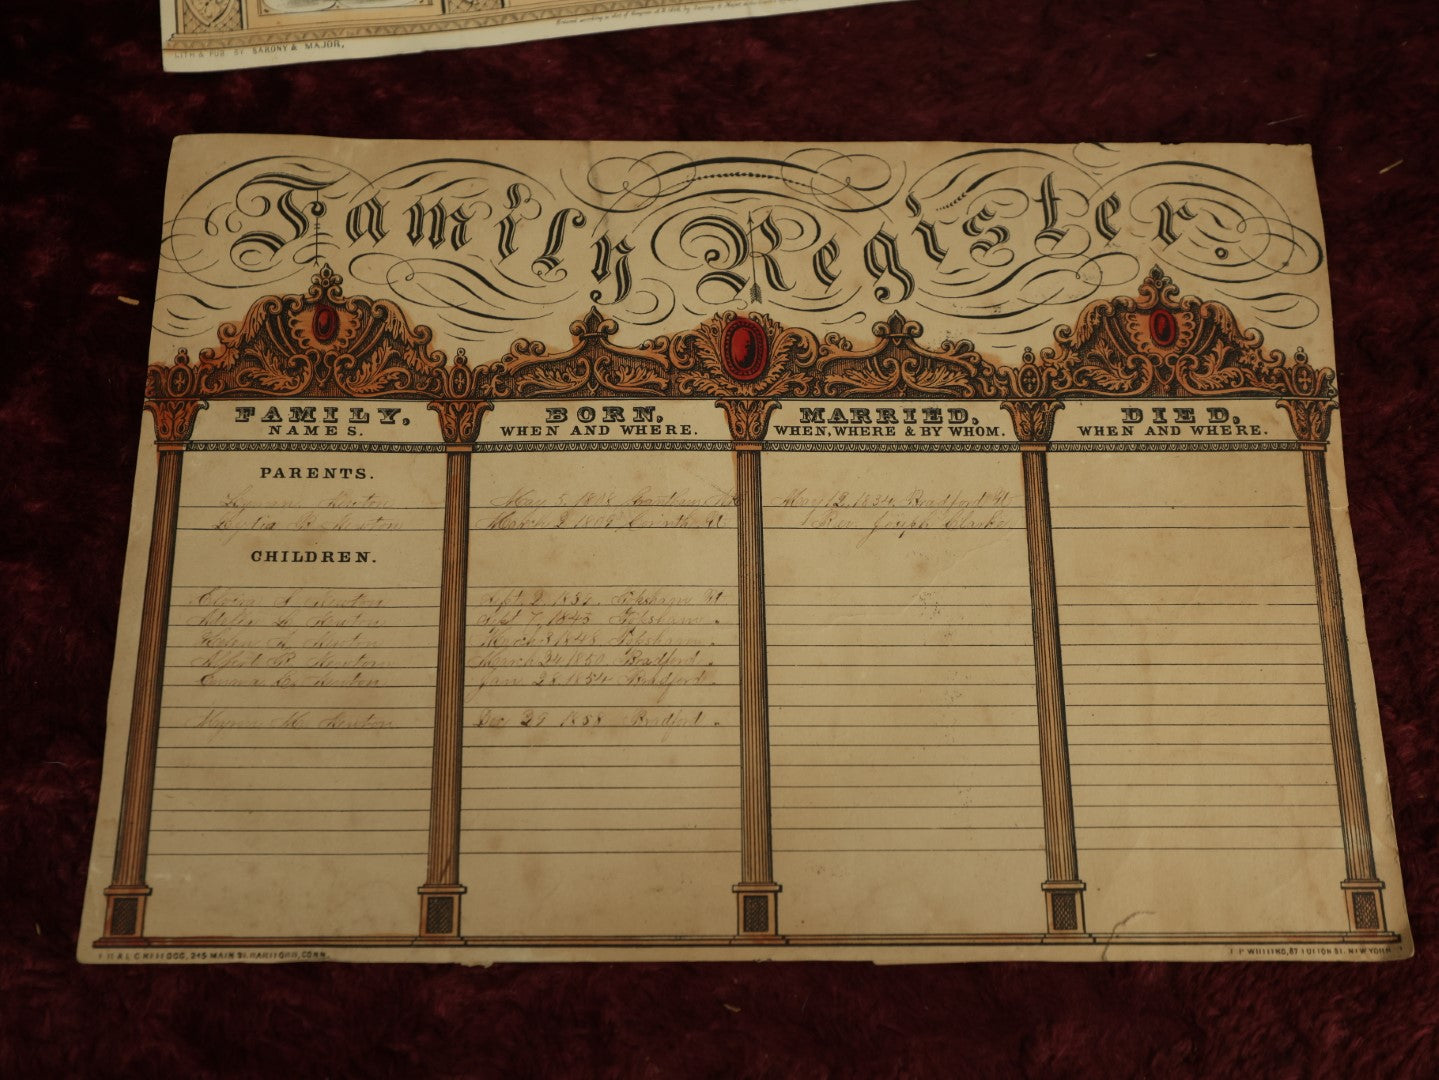 LITH & PUB. BY. SARONY & MAJOR,
Family Register.
FAMILY, NAMES.
BORN, WHEN AND WHERE.
MARRIED, WHEN, WHERE & BY WHOM.
DIED, WHEN AND WHERE.
PARENTS.
Lyman Newton May 5, 1808 May 12, 1834, Bradford Vt
Lydia B. Newton March 2 1809 Corinth Vt Rev. Joseph Clark
CHILDREN.
Newton Sept 2, Topsham Vt
Newton Sept 7, 1843 Topsham "
Helen Newton March 1848 Topsham "
Albert R. Newton March 24 1850 Bradford "
Emma E. Newton Jan. 28, 1854 Bradford "
Myra M. Newton Dec 29 1858 Bradford "
E.B. & E.C. KELLOGG, 245 MAIN ST. HARTFORD, CONN.
F. P. WHITING, 87 FULTON ST. NEW YORK